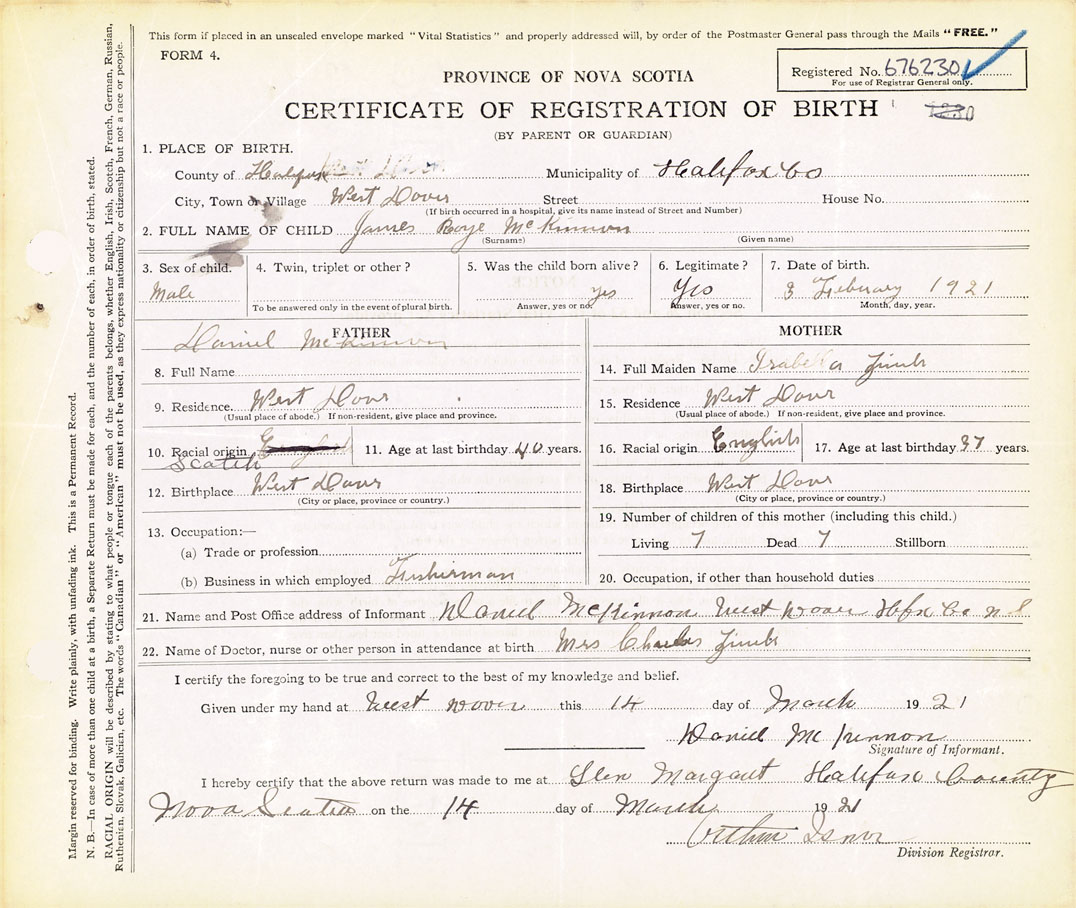 This form if placed in an unsealed envelope marked "Vital Statistics" and properly addressed will, by order of the Postmaster General pass through the Mails "FREE."
FORM 4.
Registered No. 676230
For use of Registrar General only.
PROVINCE OF NOVA SCOTIA
CERTIFICATE OF REGISTRATION OF BIRTH
1230
(BY PARENT OR GUARDIAN)
1. PLACE OF BIRTH.
County of Halifax Municipality of Halifax Co
City, Town or Village West Dover Street House No.
(If birth occurred in a hospital, give its name instead of Street and Number)
2. FULL NAME OF CHILD James Boye McKinnon
(Surname) (Given name)
3. Sex of child. 4. Twin, triplet or other? 5. Was the child born alive? 6. Legitimate? 7. Date of birth.
Male yes Yes 3 Feberuary 1921
To be answered only in the event of plural birth. Answer, yes or no. Answer, yes or no. Month, day, year.
FATHER
Daniel McKinnon
8. Full Name
9. Residence. West Dover
(Usual place of abode.) If non-resident, give place and province.
10. Racial origin English 11. Age at last birthday 40 years.
Scotch
12. Birthplace West Dover
(City or place, province or country.)
13. Occupation:—
(a) Trade or profession
(b) Business in which employed Fisherman
MOTHER
14. Full Maiden Name Isabella
15. Residence West Dover
(Usual place of abode.) If non-resident, give place and province.
16. Racial origin English 17. Age at last birthday 37 years.
18. Birthplace West Dover
(City or place, province or country.)
19. Number of children of this mother (including this child.)
Living 7 Dead 7 Stillborn
20. Occupation, if other than household duties
21. Name and Post Office address of Informant Daniel McKinnon West Dover Hfx Co N S
22. Name of Doctor, nurse or other person in attendance at birth Mrs Charles
I certify the foregoing to be true and correct to the best of my knowledge and belief.
Given under my hand at West Dover this 14 day of March 1921
Daniel McKinnon
Signature of Informant.
I hereby certify that the above return was made to me at Glen Margaut Halifax County
Nova Scotia on the 14 day of March 1921
Arthur Isnor
Division Registrar.
Margin reserved for binding. Write plainly, with unfading ink. This is a Permanent Record.
N. B.—In case of more than one child at a birth, a Separate Return must be made for each, and the number of each, in order of birth, stated.
RACIAL ORIGIN will be described by stating to what people or tongue each of the parents belongs, whether English, Irish, Scotch, French, German, Russian,
Ruthenian, Slovak, Galician, etc. The words "Canadian" or "American" must not be used, as they express nationality or citizenship but not a race or people.